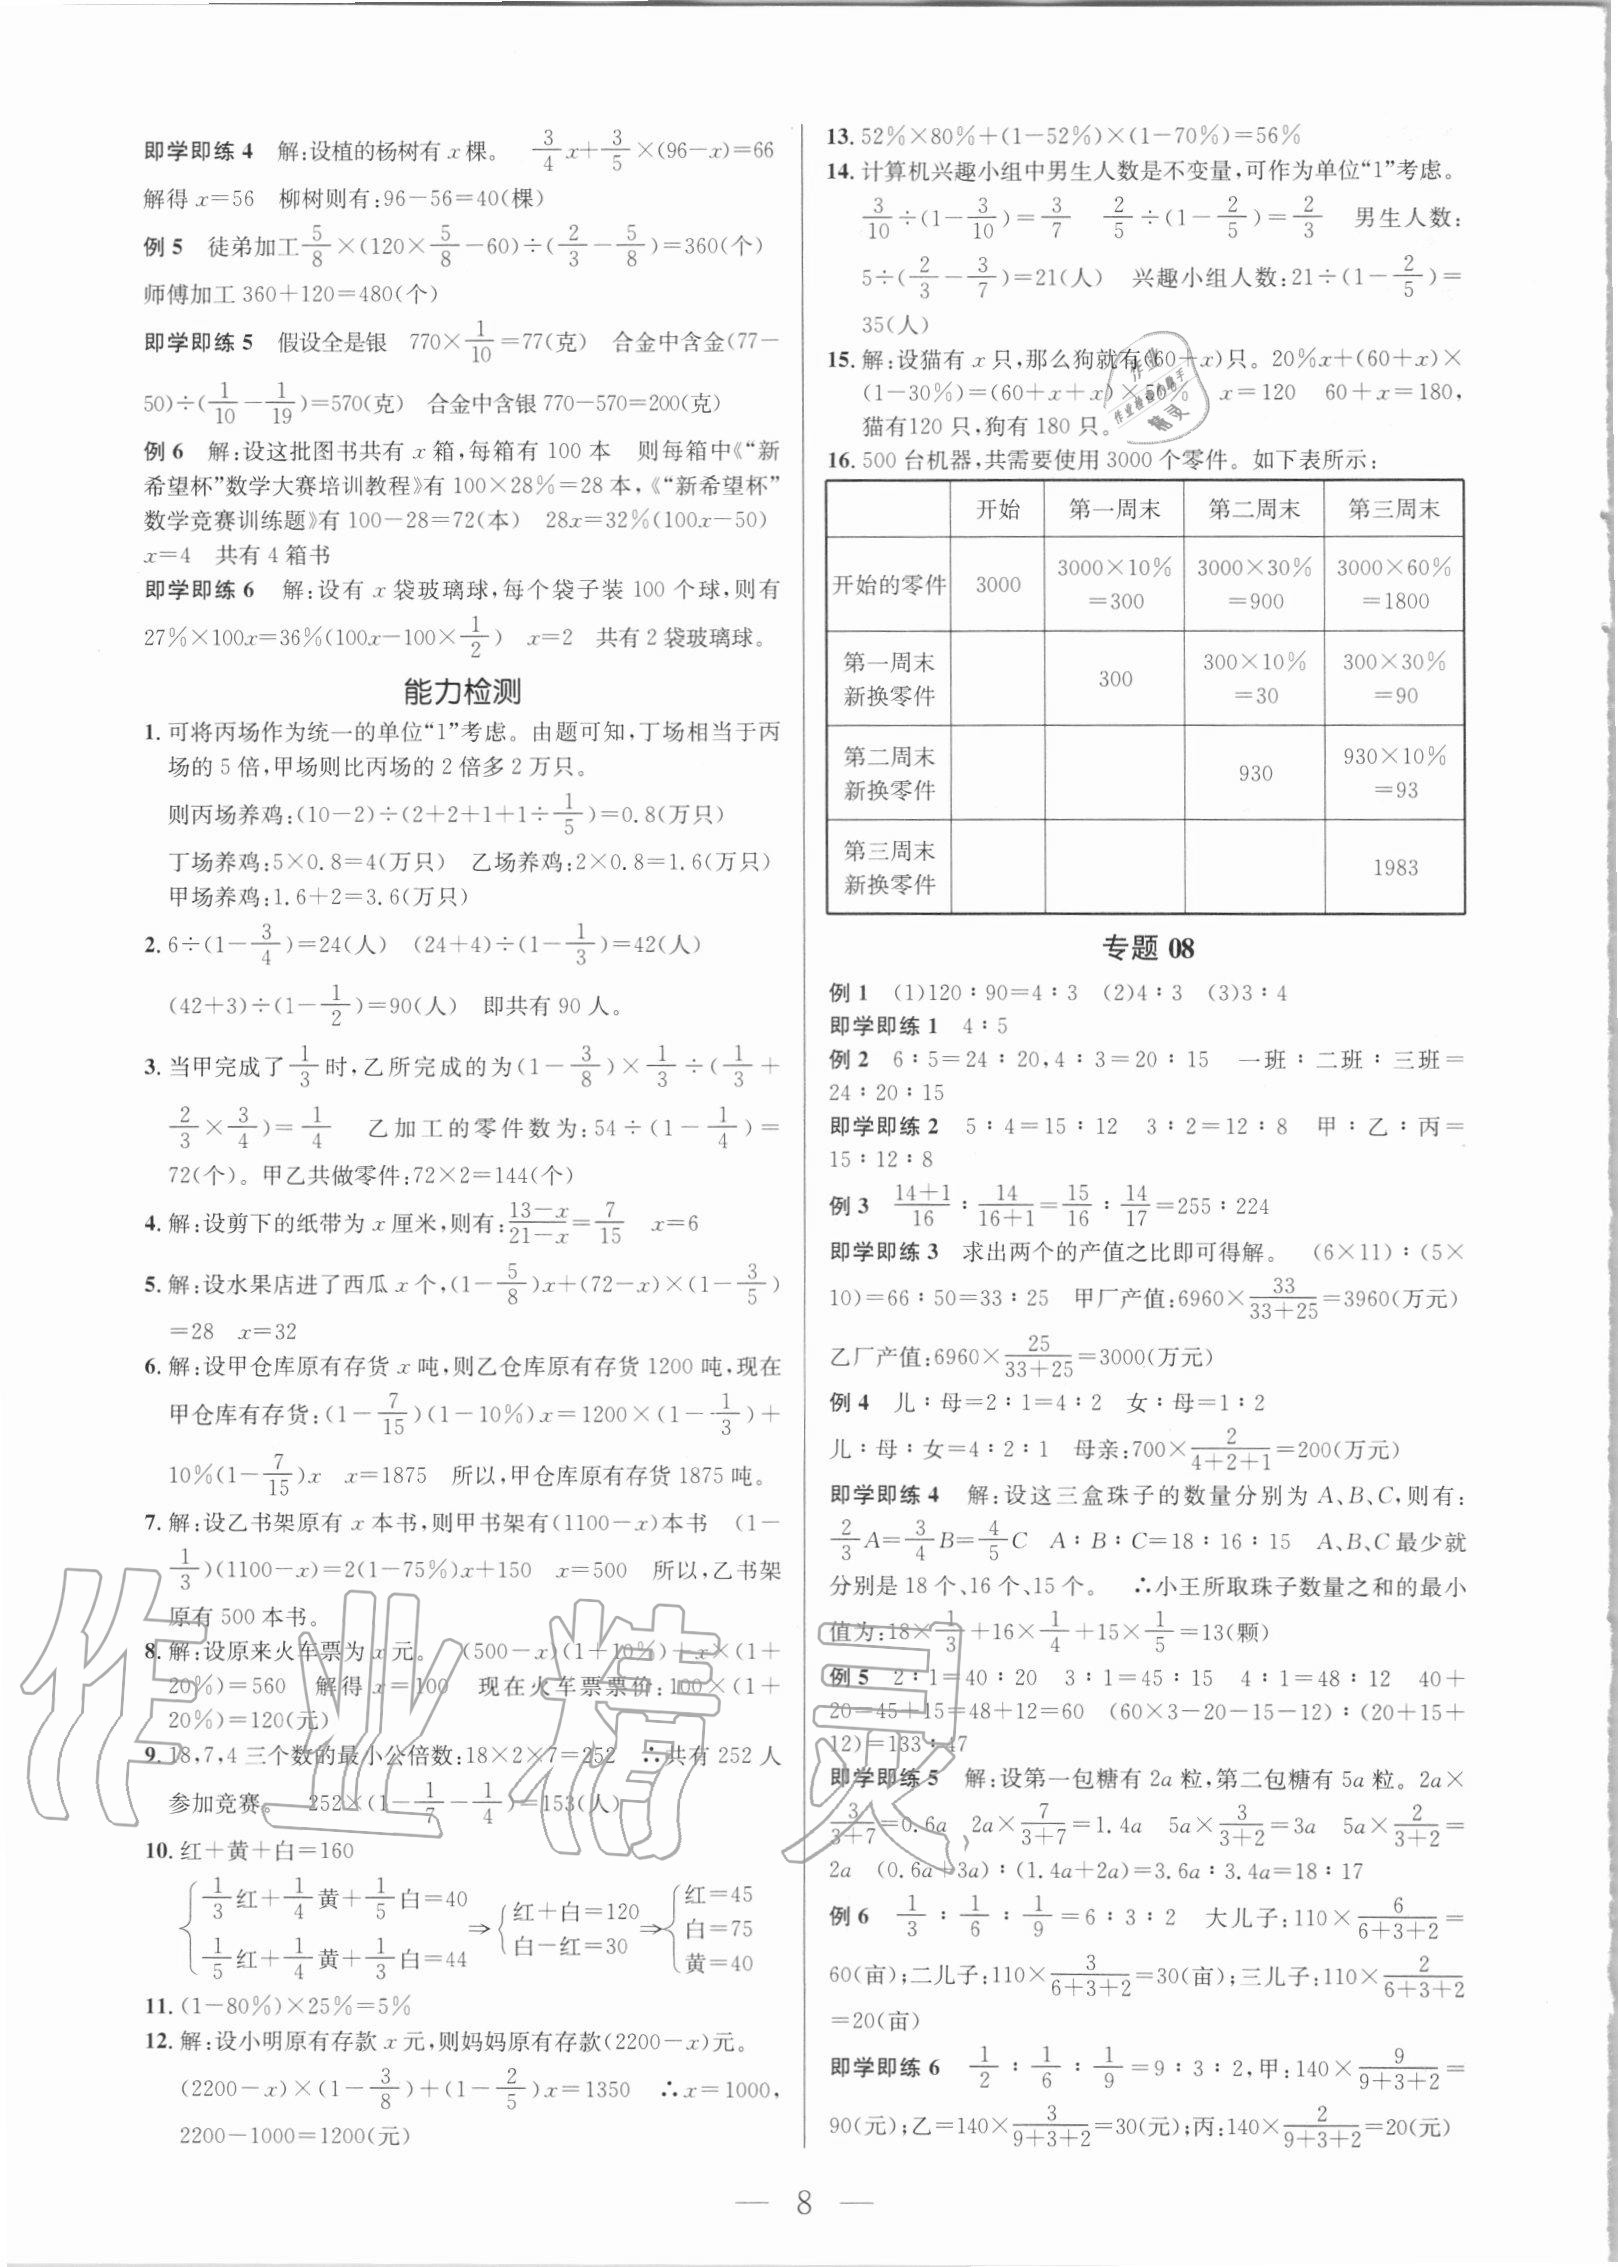 即学即练 4　解:设植的杨树有 x 棵。　3/4 x+3/5×(96−x)=66
解得 x=56　柳树则有:96−56=40(棵)
例 5　徒弟加工5/8×(120×5/8−60)÷(2/3−5/8)=360(个)
师傅加工 360+120=480(个)
即学即练 5　假设全是银　770×1/10=77(克)　合金中含金(77−
50)÷(1/10−1/19)=570(克)　合金中含银 770−570=200(克)
例 6　解:设这批图书共有 x 箱,每箱有 100 本　则每箱中《“新
希望杯”数学大赛培训教程》有 100×28%=28 本,《“新希望杯”
数学竞赛训练题》有 100−28=72(本)　28x=32%(100x−50)
x=4　共有 4 箱书
即学即练 6　解:设有 x 袋玻璃球,每个袋子装 100 个球,则有
27%×100x=36%(100x−100×1/2)　x=2　共有 2 袋玻璃球。
能力检测
1. 可将丙场作为统一的单位“1”考虑。由题可知,丁场相当于丙
场的 5 倍,甲场则比丙场的 2 倍多 2 万只。
则丙场养鸡:(10−2)÷(2+2+1+1÷1/5)=0.8(万只)
丁场养鸡:5×0.8=4(万只)　乙场养鸡:2×0.8=1.6(万只)
甲场养鸡:1.6+2=3.6(万只)
2. 6÷(1−3/4)=24(人)　(24+4)÷(1−1/3)=42(人)
(42+3)÷(1−1/2)=90(人)　即共有 90 人。
3. 当甲完成了1/3时,乙所完成的为(1−3/8)×1/3÷(1/3+
2/3×3/4)=1/4　乙加工的零件数为:54÷(1−1/4)=
72(个)。甲乙共做零件:72×2=144(个)
4. 解:设剪下的纸带为 x 厘米,则有:(13−x)/(21−x)=7/15　x=6
5. 解:设水果店进了西瓜 x 个,(1−5/8)x+(72−x)×(1−3/5)
=28　x=32
6. 解:设甲仓库原有存货 x 吨,则乙仓库原有存货 1200 吨,现在
甲仓库有存货:(1−7/15)(1−10%)x=1200×(1−1/3)+
10%(1−7/15)x　x=1875　所以,甲仓库原有存货 1875 吨。
7. 解:设乙书架原有 x 本书,则甲书架有(1100−x)本书　(1−
1/3)(1100−x)=2(1−75%)x+150　x=500　所以,乙书架
原有 500 本书。
8. 解:设原来火车票为 x 元。　(500−x)(1+10%)+x×(1+
20%)=560　解得 x=100　现在火车票票价:100×(1+
20%)=120(元)
9. 18,7,4 三个数的最小公倍数:18×2×7=252　∴共有 252 人
参加竞赛。　252×(1−1/7−1/4)=153(人)
10. 红+黄+白=160
{1/3红+1/4黄+1/5白=40　⇒{红+白=120　⇒{红=45
1/5红+1/4黄+1/3白=44　白−红=30　白=75
黄=40
11. (1−80%)×25%=5%
12. 解:设小明原有存款 x 元,则妈妈原有存款(2200−x)元。
(2200−x)×(1−3/8)+(1−2/5)x=1350　∴x=1000,
2200−1000=1200(元)
13. 52%×80%+(1−52%)×(1−70%)=56%
14. 计算机兴趣小组中男生人数是不变量,可作为单位“1”考虑。
3/10÷(1−3/10)=3/7　2/5÷(1−2/5)=2/3　男生人数:
5÷(2/3−3/7)=21(人)　兴趣小组人数:21÷(1−2/5)=
35(人)
15. 解:设猫有 x 只,那么狗就有(60+x)只。20%x+(60+x)×
(1−30%)=(60+x+x)×50%　x=120　60+x=180,
猫有120 只,狗有 180 只。
16. 500 台机器,共需要使用 3000 个零件。如下表所示:
开始　第一周末　第二周末　第三周末
开始的零件　3000　3000×10%=300　3000×30%=900　3000×60%=1800
第一周末新换零件　300　300×10%=30　300×30%=90
第二周末新换零件　930　930×10%=93
第三周末新换零件　1983
专题 08
例 1　(1)120∶90=4∶3　(2)4∶3　(3)3∶4
即学即练 1　4∶5
例 2　6∶5=24∶20,4∶3=20∶15　一班∶二班∶三班=
24∶20∶15
即学即练 2　5∶4=15∶12　3∶2=12∶8　甲∶乙∶丙=
15∶12∶8
例 3　(14+1)/16∶14/(16+1)=15/16∶14/17=255∶224
即学即练 3　求出两个的产值之比即可得解。　(6×11)∶(5×
10)=66∶50=33∶25　甲厂产值:6960×33/(33+25)=3960(万元)
乙厂产值:6960×25/(33+25)=3000(万元)
例 4　儿∶母=2∶1=4∶2　女∶母=1∶2
儿∶母∶女=4∶2∶1　母亲:700×2/(4+2+1)=200(万元)
即学即练 4　解:设这三盒珠子的数量分别为 A、B、C,则有:
2/3A=3/4B=4/5C　A∶B∶C=18∶16∶15　A、B、C最少就
分别是 18 个、16 个、15 个。　∴小王所取珠子数量之和的最小
值为:18×1/3+16×1/4+15×1/5=13(颗)
例 5　2∶1=40∶20　3∶1=45∶15　4∶1=48∶12　40+
20=45+15=48+12=60　(60×3−20−15−12)∶(20+15+
12)=133∶47
即学即练 5　解:设第一包糖有 2a 粒,第二包糖有 5a 粒。2a×
3/(3+7)=0.6a　2a×7/(3+7)=1.4a　5a×3/(3+2)=3a　5a×2/(3+2)=
2a　(0.6a+3a)∶(1.4a+2a)=3.6a∶3.4a=18∶17
例 6　1/3∶1/6∶1/9=6∶3∶2　大儿子:110×6/(6+3+2)=
60(亩);二儿子:110×3/(6+3+2)=30(亩);三儿子:110×2/(6+3+2)
=20(亩)
即学即练 6　1/2∶1/6∶1/9=9∶3∶2,甲:140×9/(9+3+2)=
90(元);乙=140×3/(9+3+2)=30(元);丙:140×2/(9+3+2)=20(元)
— 8 —
作业精灵